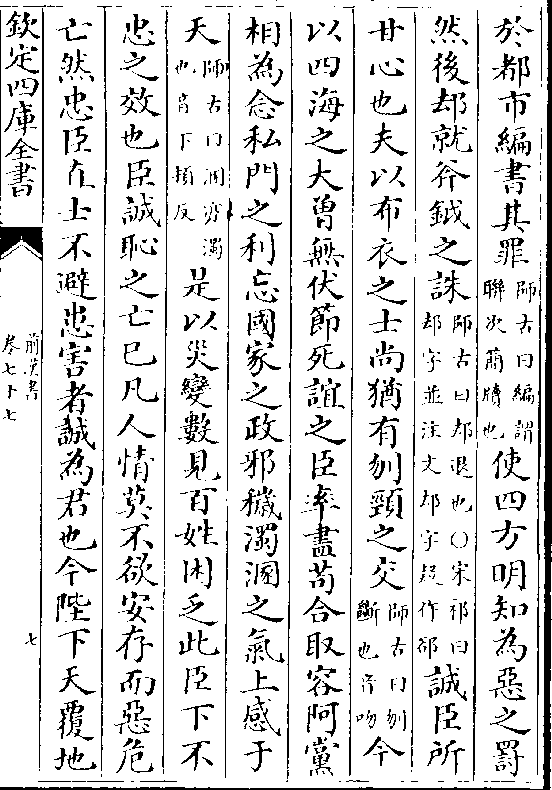 於都市編書其罪師古曰編謂聯次簡牘也使四方明知為惡之罰
然後却就斧鉞之誅師古曰却退也〇宋祁曰却字並注文却字疑作郤誠臣所
甘心也夫以布衣之士尚猶有刎頸之交師古曰刎斷也音吻今
以四海之大曽無伏節死誼之臣率盡苟合取容阿黨
相為念私門之利忘國家之政邪穢濁溷之氣上感于
天師古曰溷亦濁也音下頓反是以災變數見百姓困乏此臣下不
忠之效也臣誠恥之亡已凡人情莫不欲安存而惡危
亡然忠臣直士不避患害者誠為君也今陛下天覆地
欽定四庫全書
前漢書
卷七十七
七